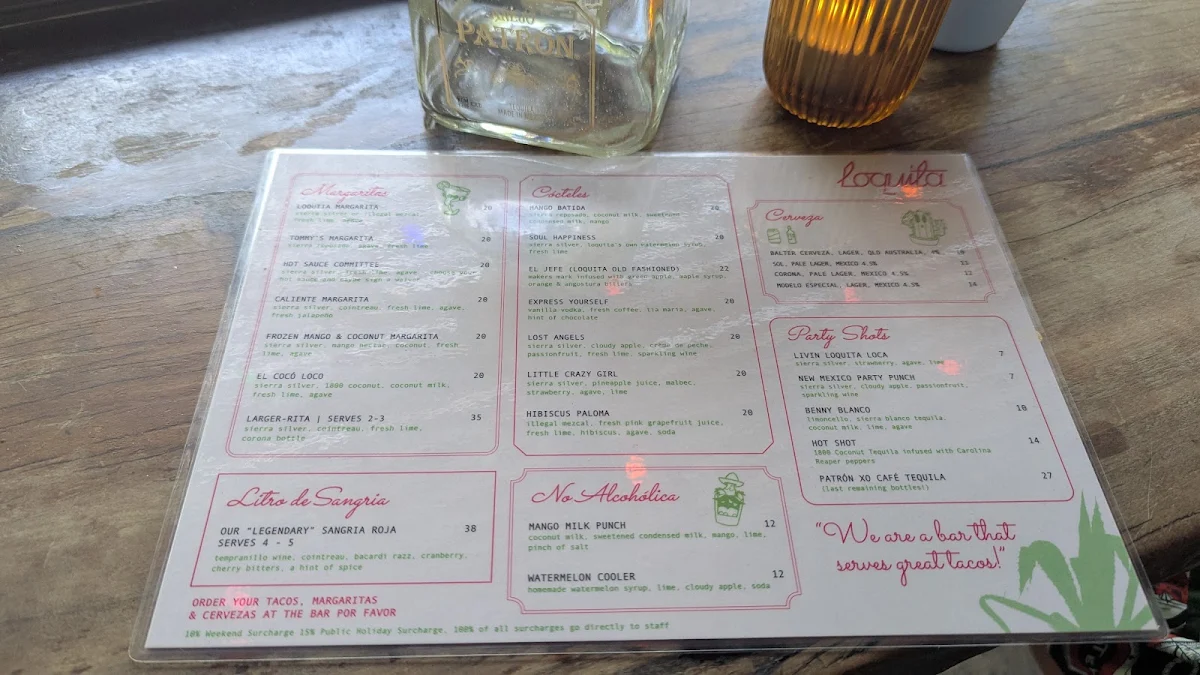 PATRÓN
Loquita
Margaritas
LOQUITA MARGARITA 20
fresh lime, agave
TOMMY'S MARGARITA 20
sierra reposado, agave, fresh lime
HOT SAUCE COMMITTEE 20
sierra silver, fresh lime, agave
CALIENTE MARGARITA 20
sierra silver, cointreau, fresh lime, agave,
fresh jalapeño
FROZEN MANGO & COCONUT MARGARITA 20
sierra silver, mango nectar, coconut, fresh
lime, agave
EL COCÓ LOCO 20
sierra silver, 1800 coconut, coconut milk,
fresh lime, agave
LARGER-RITA | SERVES 2-3 35
sierra silver, cointreau, fresh lime,
corona bottle
Litro de Sangria
OUR "LEGENDARY" SANGRIA ROJA 38
SERVES 4 - 5
tempranillo wine, cointreau, bacardi razz, cranberry,
cherry bitters, a hint of spice
ORDER YOUR TACOS, MARGARITAS
& CERVEZAS AT THE BAR POR FAVOR
10% Weekend Surcharge 15% Public Holiday Surcharge. 100% of all surcharges go directly to staff
Cocteles
MANGO BATIDA 20
sierra reposado, coconut milk, sweetened
condensed milk, mango
SOUL HAPPINESS 20
sierra silver, loquita's own watermelon syrup,
fresh lime
EL JEFE (LOQUITA OLD FASHIONED) 22
makers mark infused with green apple, maple syrup,
orange & angostura bitters
EXPRESS YOURSELF 20
vanilla vodka, fresh coffee, tia maria, agave,
hint of chocolate
LOST ANGELS 20
sierra silver, cloudy apple, crème de peche,
passionfruit, fresh lime, sparkling wine
LITTLE CRAZY GIRL 20
sierra silver, pineapple juice, malbec,
strawberry, agave, lime
HIBISCUS PALOMA 20
illegal mezcal, fresh pink grapefruit juice,
fresh lime, hibiscus, agave, soda
No Alcohólica
MANGO MILK PUNCH 12
coconut milk, sweetened condensed milk, mango, lime,
pinch of salt
WATERMELON COOLER 12
homemade watermelon syrup, lime, cloudy apple, soda
Cerveza
BALTER CERVEZA, LAGER, QLD AUSTRALIA, 4% 10
SOL, PALE LAGER, MEXICO 4.5% 13
CORONA, PALE LAGER, MEXICO 4.5% 13
MODELO ESPECIAL, LAGER, MEXICO 4.5% 14
Party Shots
LIVIN LOQUITA LOCA 7
sierra silver, strawberry, agave, lime
NEW MEXICO PARTY PUNCH 7
sierra silver, cloudy apple, passionfruit,
sparkling wine
BENNY BLANCO 10
limoncello, sierra blanco tequila,
coconut milk, lime, agave
HOT SHOT 14
1800 Coconut Tequila infused with Carolina
Reaper peppers
PATRÓN XO CAFÉ TEQUILA 27
(last remaining bottles!)
"We are a bar that
serves great tacos!"